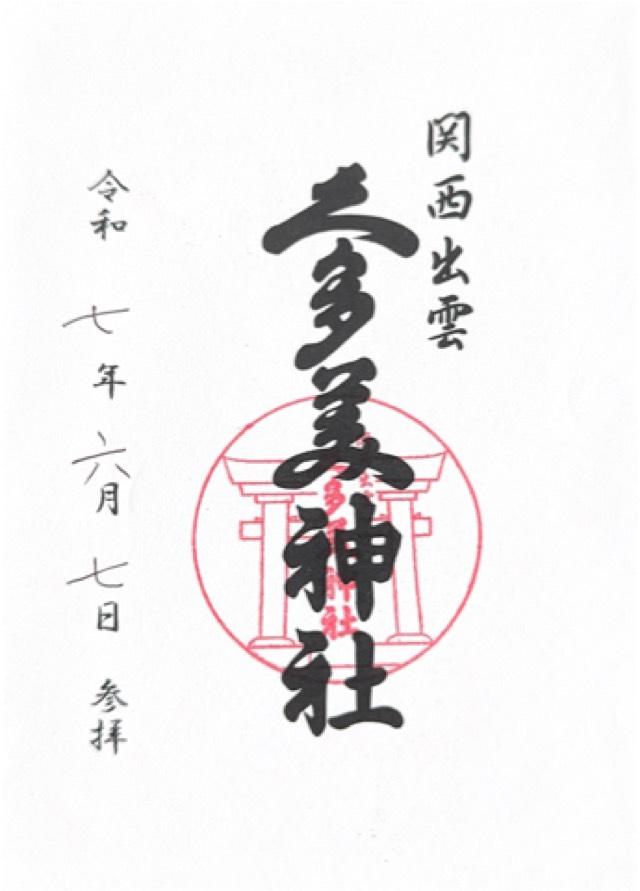 関西出雲
久多美神社
令和 七年 六月 七日 参拝